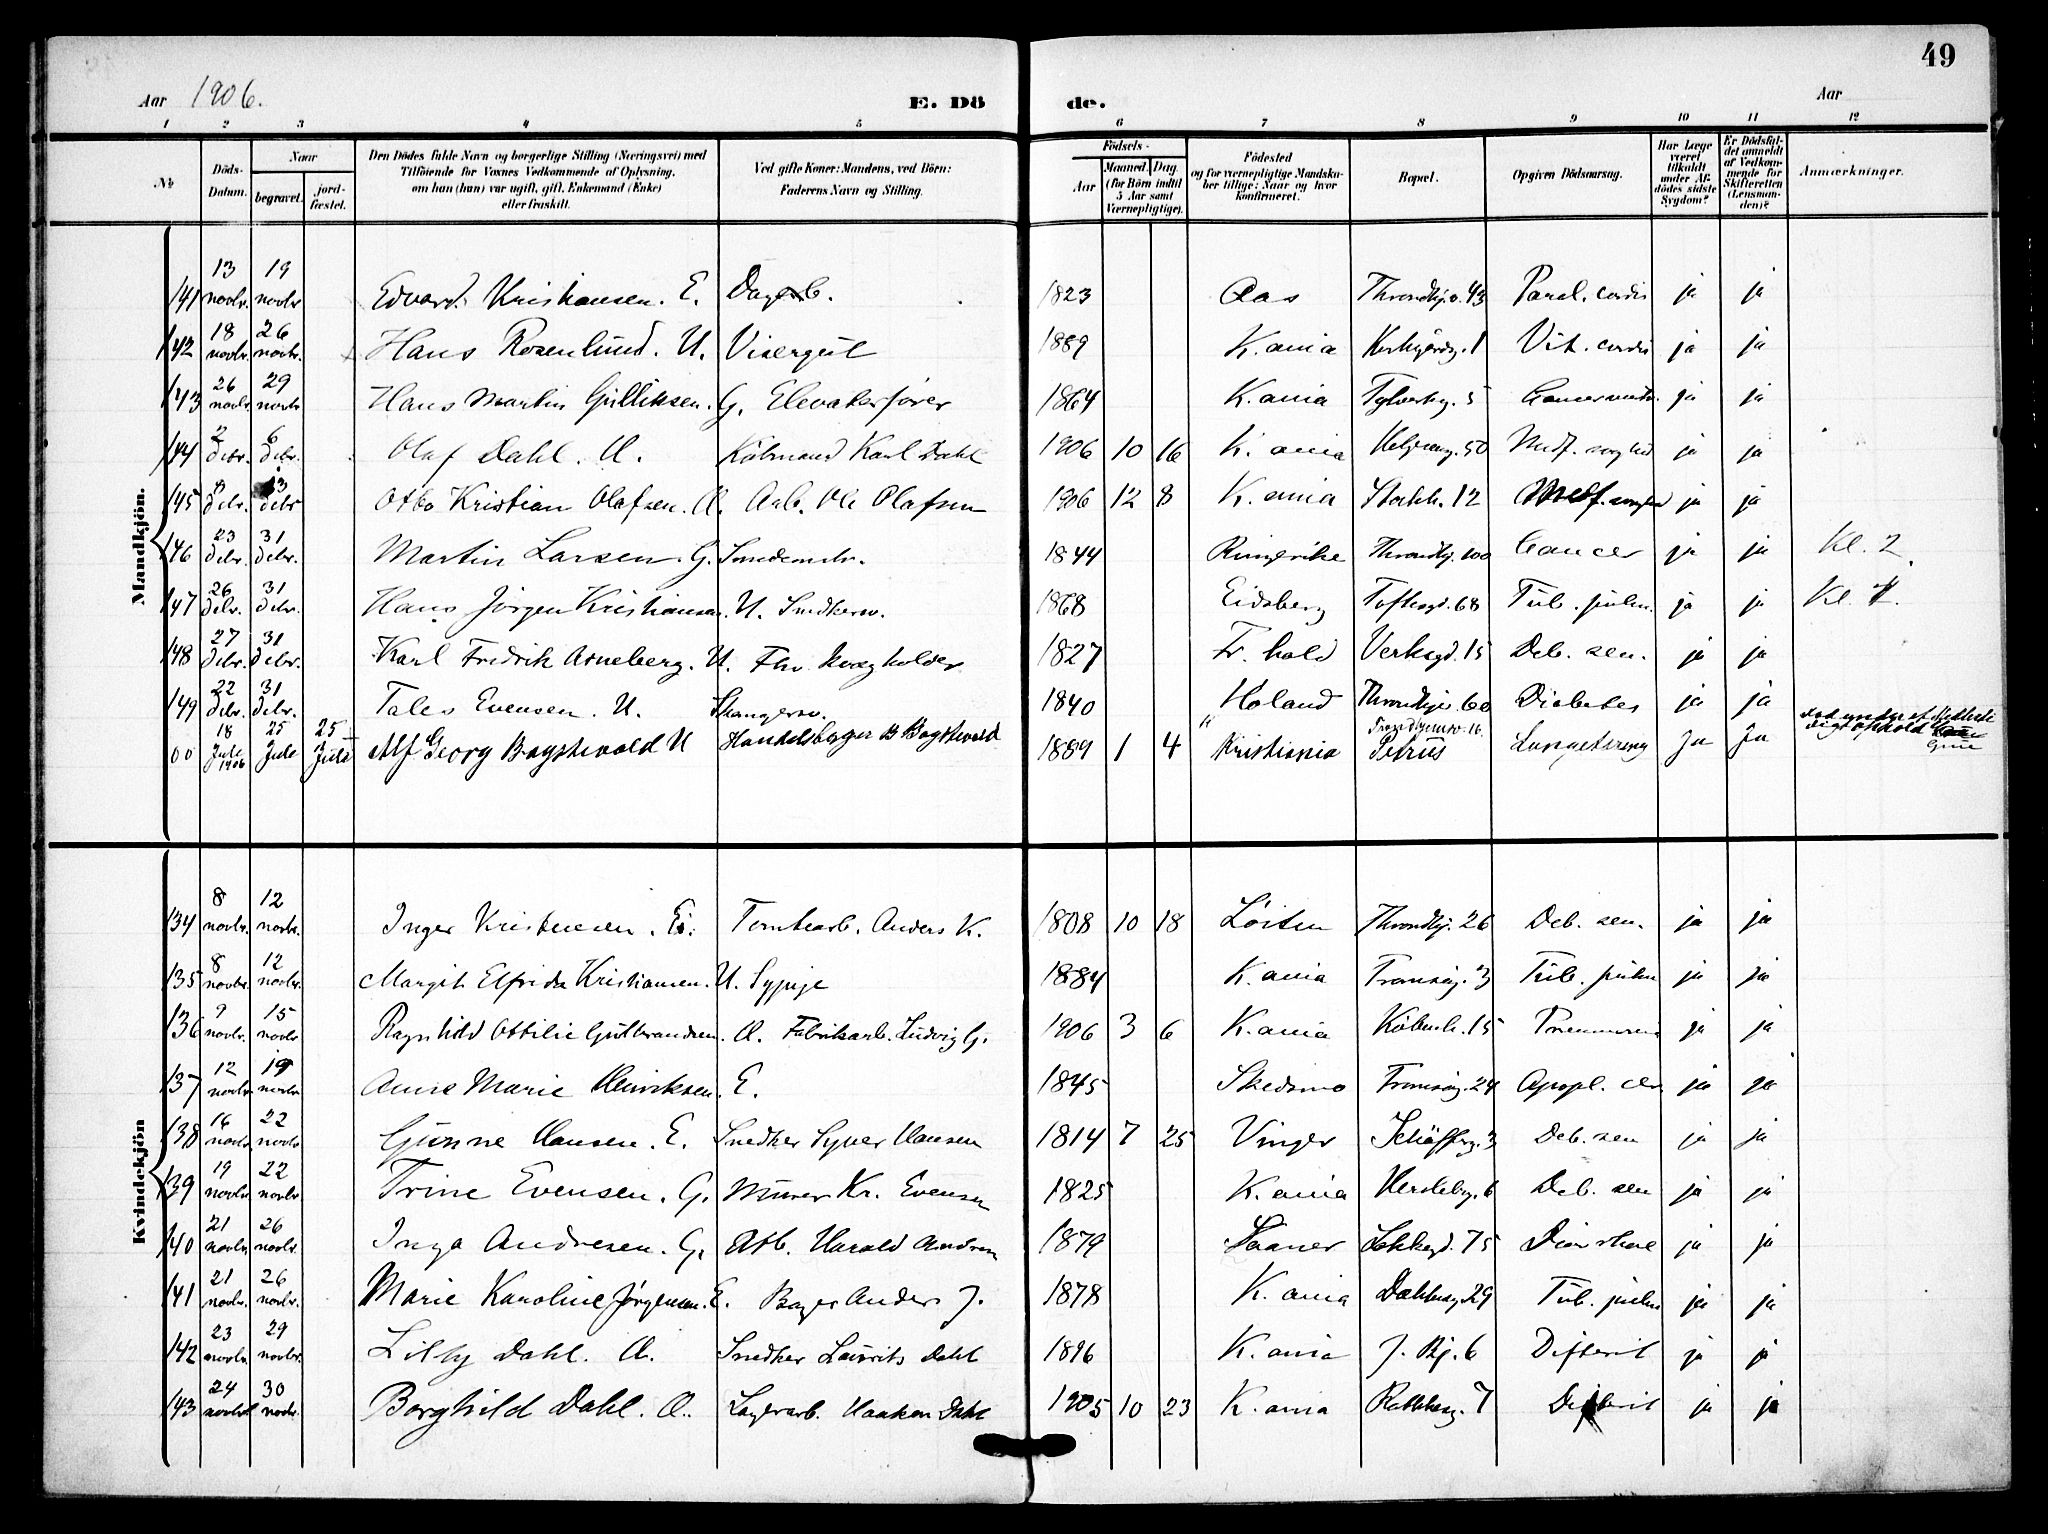 49
Aar 1906.
E. Dö de.
Aar
1 2 3 4 5 6 7 8 9 10 11 12
No
Döds-Datum.
Naar
begravet.
jord-fæstet.
Den Dödes fulde Navn og borgerlige Stilling (Næringsvei) med
Tilföiende for Voxnes Vedkommende af Oplysning,
om han (hun) var ugift, gift, Enkemand (Enke)
eller fraskilt.
Ved gifte Koner: Mandens, ved Börn:
Faderens Navn og Stilling.
Födsels-
Aar
Maaned. Dag.
(for Börn indtil
5 Aar samt
Værnepligtige).
Födested
og for værnepligtige Mandska-
ber tillige: Naar og hvor
konfirmeret.
Bopæl.
Opgiven Dödsaarsag.
Har Læge
været
tilkaldt
under Af-
dödes sidste
Sygdom?
Er Dödsfal-
det anmeldt
af Vedkom-
mende for
Skifteretten
(Lensman-
den)?
Anmærkninger.
Mandkjön.
141 13 novbr. 19 novbr Edvard Kristiansen. E. Dagarb. 1823 Aas Throndhj.v. 43 Paral. cordis ja ja
142 18 novbr. 26 novbr. Hans Rosenlund. U. Visergut 1889 K.ania Kirkegårdsg. 1 Vit. cordis ja ja
143 26 novbr. 29 novbr Hans Martin Gulliksen. G. Elevatorfører 1864 K.ania 5 Cancer ja ja
144 2 debr. 6 debr. Olaf Dahl. U. Købmand Karl Dahl 1906 10 16 K.ania 50 Medf. svaghed ja ja
145 debr. 13 debr Otto Kristian Olafsen. U. Arb. Ole Olafsen 1906 12 8 K.ania Stockh. 12 Medf. svaghed ja ja
146 23 debr. 31 debr. Martin Larsen. G. Smedemstr. 1844 Ringerike Throndhj. 100 Cancer ja ja Kl. 2
147 26 debr. 31 debr. Hans Jørgen Kristiansen. U. Snedkersv. 1868 Eidsberg Toftesgd. 68 Tub. pulm. ja ja Kl. 1.
148 27 debr. 31 debr. Karl Fredrik Arneberg. U. Fhv. 1827 Fr.hald Verksgd. 15 Deb. sen. ja ja
149 22 debr. 31 debr. Tales Evensen. U. Stangersv. 1840 Høland Throndhjv. 60 Diabetes ja ja
00 18 Juli 1906 25 Juli 25 Juli Alf Georg Bagstevold U Handelsborger B Bagstevold 1889 1 4 Kristiania Trondhjemsv. 16. Petrus Lungetæring Ja Ja
Kvindekjön
134 8 novbr. 12 novbr. Inger Kristensen. E. Tomtearb. Anders K. 1808 10 18 Löiten Throndhj. 26 Deb. sen. ja ja
135 8 novbr. 12 novbr. Margit Elfrida Kristiansen. U. Sypige 1884 K.ania Tromsøg. 3 Tub. pulm ja ja
136 9 novbr. 15 novbr Ragnhild Ottilie Gulbrandsen. U. Fabrikarb. Ludvig G. 1906 3 6 K.ania Københ. 15 Pneumonia ja ja
137 12 novbr. 19 novbr Anne Marie Henriksen. E. 1845 Skedsmo Tromsøg. 24 Apopl. cer ja ja
138 16 novbr. 22 novbr Gunne Hansen. E. Snedker Syver Hansen 1814 7 25 Vinger Schöffersg. 3 Deb. sen ja ja
139 19 novbr. 22 novbr. Trine Evensen. G. Murer Kr. Evensen 1825 K.ania Herslebsg. 6 Deb. sen ja ja
140 21 novbr. 26 novbr. Inga Andresen. G. Arb. Harald Andresen 1879 Sääner Sekkesgd. 75 ja ja
141 21 novbr. 26 novbr. Marie Karoline Jørgensen. E. Bager Anders J. 1878 K.ania Dahlbsg. 29 Tub. pulm ja ja
142 23 novbr. 29 novbr. Lilly Dahl. U. Snedker Laurits Dahl 1896 K.ania J. Bj. 6 Difterit ja ja
143 24 novbr 30 novbr. Borghild Dahl. U. Lagerarb. Haakon Dahl 1905 10 23 K.ania Rathkesg. 7 Difterit ja ja